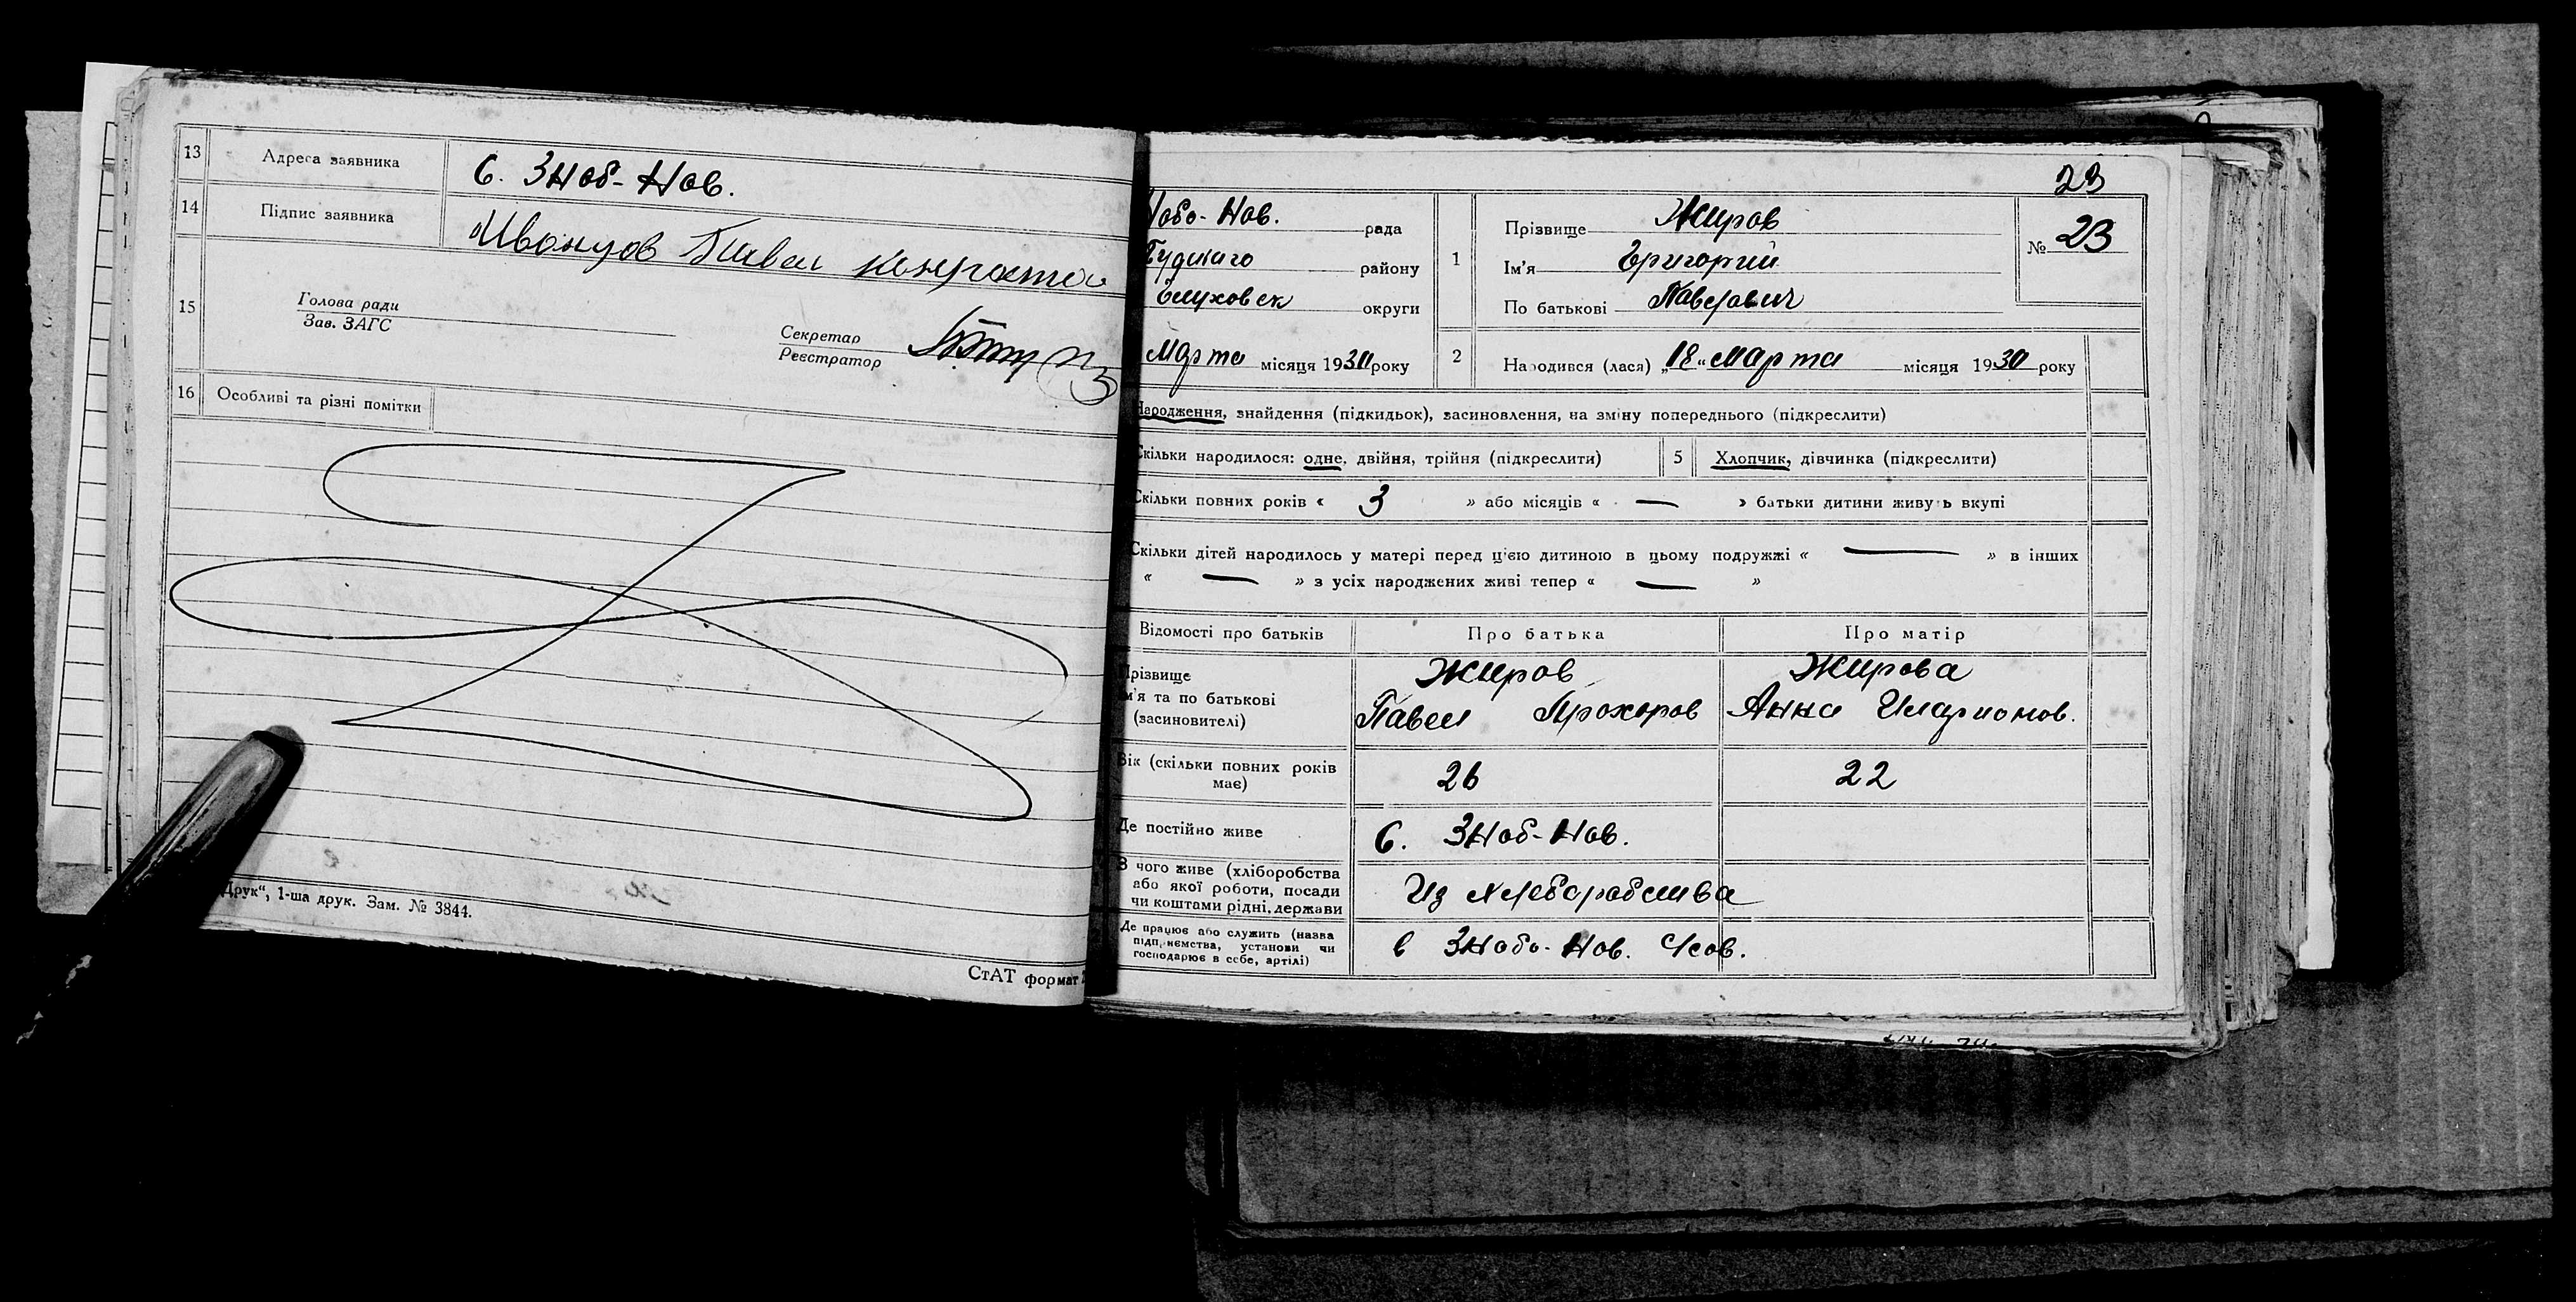 13 Адреса заявника С. Зноб-Нов.
14 Підпис заявника Ивонцов Павел
15 Голова ради
Зав. ЗАГС
Секретар
Реєстратор
16 Особливі та різні помітки
Друк“, 1-ша друк. Зам. № 3844.
СтАТ формат
23
ново-Нов. рада
району
Глуховск округи
1 Прізвище Жиров
Ім'я Григорий
По батькові Павлович
№ 23
Марта місяця 1930 року
2 Народився (лася) „18“ Марта місяця 1930 року
Народження, знайдення (підкидьок), засиновлення, на зміну попереднього (підкреслити)
Скільки народилося: одне, двійня, трійня (підкреслити) 5 Хлопчик, дівчинка (підкреслити)
Скільки повних років « 3 » або місяців « — » батьки дитини живуть вкупі
Скільки дітей народилось у матері перед цією дитиною в цьому подружжі « — » в інших
« — » з усіх народжених живі тепер « — »
Відомості про батьків Про батька Про матір
Прізвище Жиров Жирова
ім'я та по батькові
(засиновителі) Павел Прохоров Анна Иларионов.
Вік (скільки повних років
має) 26 22
Де постійно живе С. Зноб-Нов.
З чого живе (хліборобства
або якої роботи, посади
чи коштами рідні, держави Из хлеборобства
Де працює або служить (назва
підприємства, установи чи
господарює в себе, артілі) в Знобо-Нов.